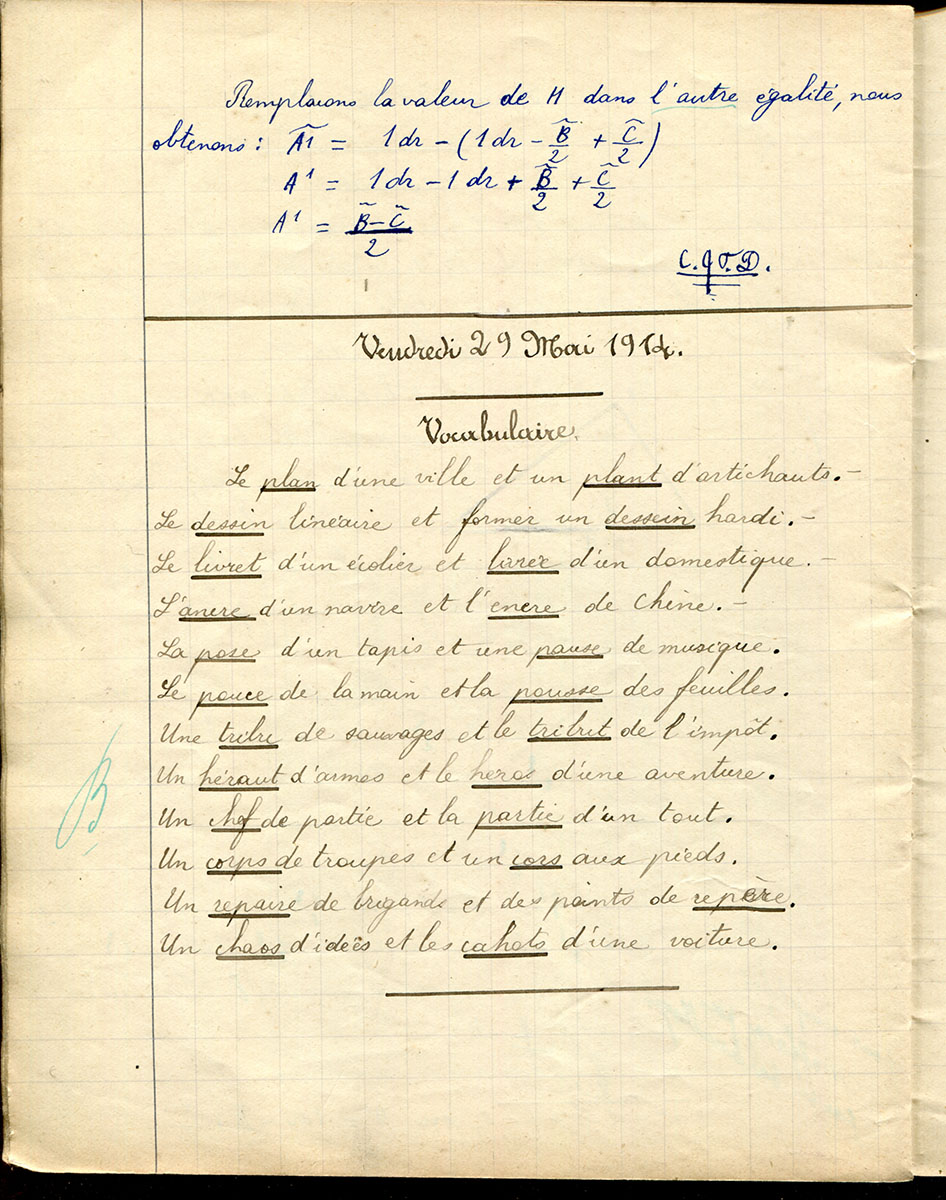 Remplaçons la valeur de H dans l'autre égalité, nous
obtenons : A1 = 1dr - (1dr - B/2 + C/2)
A¹ = 1dr - 1dr + B/2 + C/2
A¹ = B - C / 2
C.Q.F.D.
Vendredi 29 Mai 1914.
Vocabulaire.
Le plan d'une ville et un plant d'artichauts. -
Le dessin linéaire et former un dessein hardi. -
Le livret d'un écolier et livrée d'un domestique. -
L'ancre d'un navire et l'encre de Chine. -
La pose d'un tapis et une pause de musique.
Le pouce de la main et la pousse des feuilles.
Une tribu de sauvages et le tribut de l'impôt.
Un héraut d'armes et le héros d'une aventure.
Un chef de partie et la partie d'un tout.
Un corps de troupes et un cors aux pieds.
Un repaire de brigands et des points de repère.
Un chaos d'idées et les cahots d'une voiture.
B